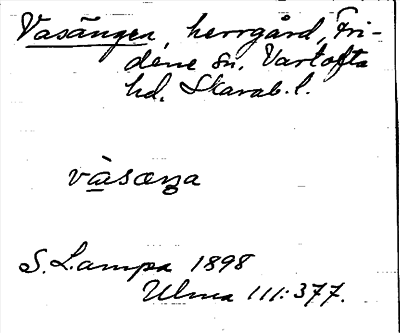 Vasängen, herrgård, Fri-
dene sn. Vartofta
hd. Skarab. l.
vàsæŋa
S. Lampa 1898
Ulma 111:377.